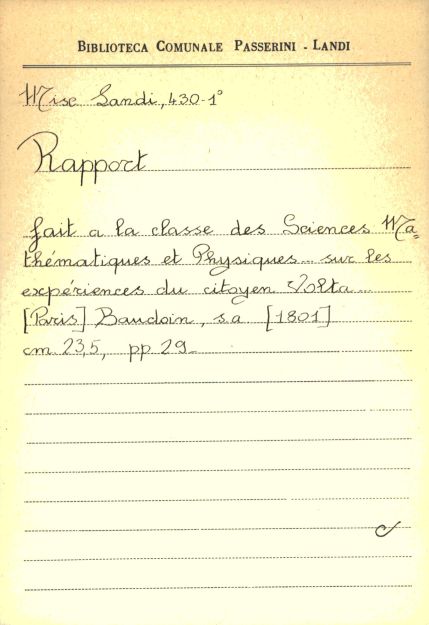 BIBLIOTECA COMUNALE PASSERINI - LANDI
Misc Landi, 430-1°
Rapport
fait a la classe des Sciences Ma=
thématiques et Physiques... sur les
expériences du citoyen Volta...
[Paris] Baudoin, s.a [1801]
cm. 23,5, pp. 29.